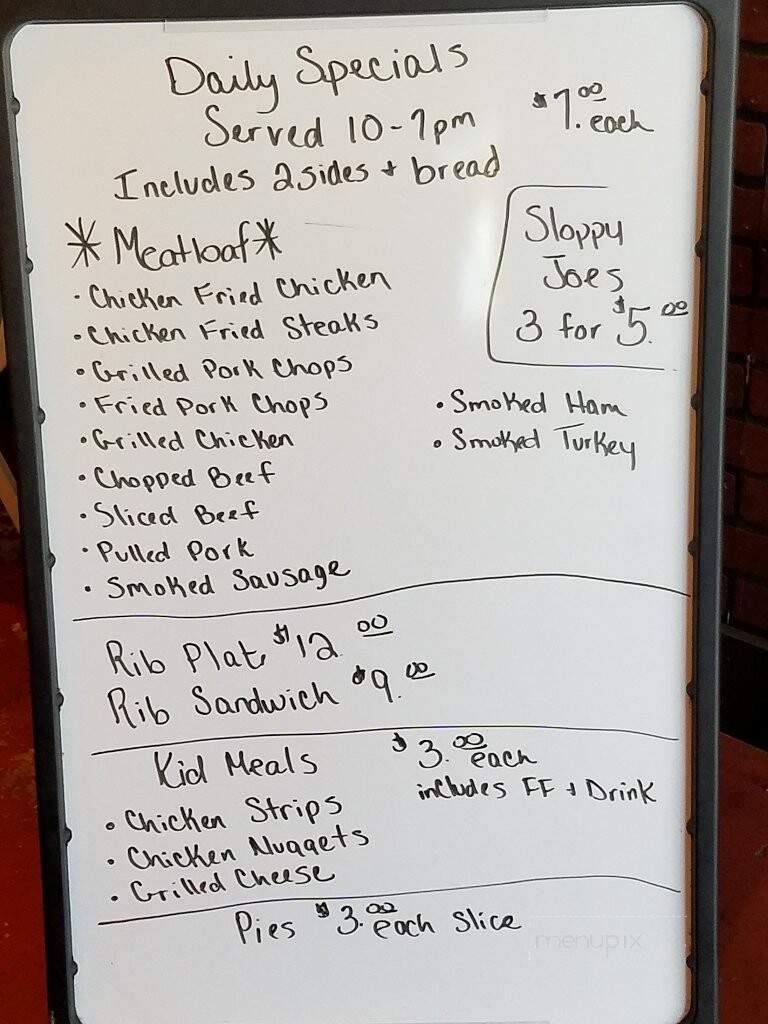 Daily Specials
Served 10-7pm $7.00 each
Includes 2 sides + bread
* Meatloaf *
• Chicken Fried Chicken
• Chicken Fried Steaks
• Grilled Pork Chops
• Fried Pork Chops
• Grilled Chicken
• Chopped Beef
• Sliced Beef
• Pulled Pork
• Smoked Sausage
Sloppy
Joes
3 for $5.00
• Smoked Ham
• Smoked Turkey
Rib Plate $12.00
Rib Sandwich $9.00
Kid Meals $3.00 each
includes FF + Drink
• Chicken Strips
• Chicken Nuggets
• Grilled Cheese
Pies $3.00 each slice
menupix